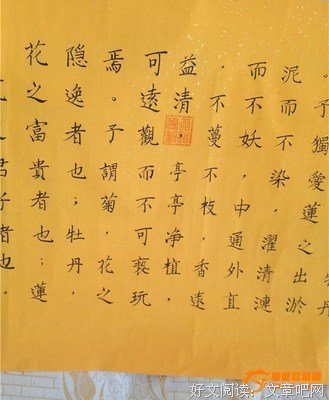 丹
。予獨愛蓮之出淤
泥而不染,濯清漣
而不妖,中通外直
,不蔓不枝,香遠
益清,亭亭净植,
可遠觀而不可褻玩
焉。予謂菊,花之
隐逸者也;牡丹,
花之富貴者也;蓮
君子者也。
華夏收藏網
好文阅读,文章吧网